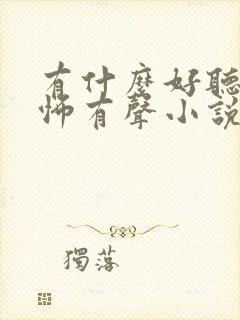 有什麼好聽
怖有聲小說
獨落